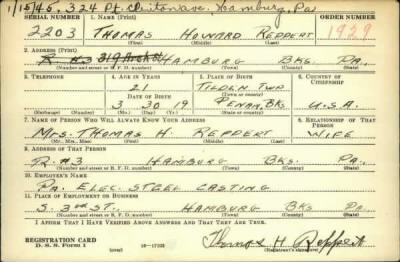 1/15/45, 324 Pt. Clinton ave. Hamburg, Pa.
SERIAL NUMBER 1. NAME (Print) ORDER NUMBER
2203 THOMAS HOWARD REPPERT 1929
(First) (Middle) (Last)
2. ADDRESS (Print)
R #3 319 Arch St HAMBURG BKS. PA.
(Number and street or R. F. D. number) (Town) (County) (State)
3. TELEPHONE 4. AGE IN YEARS 5. PLACE OF BIRTH 6. COUNTRY OF CITIZENSHIP
21 TILDEN TWP
DATE OF BIRTH (Town or county)
3 30 19 PENNA, BKS U.S.A.
(Exchange) (Number) (Mo.) (Day) (Yr.) (State or country)
7. NAME OF PERSON WHO WILL ALWAYS KNOW YOUR ADDRESS 8. RELATIONSHIP OF THAT PERSON
MRS. THOMAS H. REPPERT WIFE
(Mr., Mrs., Miss) (First) (Middle) (Last)
9. ADDRESS OF THAT PERSON
R #3 HAMBURG BKS. PA.
(Number and street or R. F. D. number) (Town) (County) (State)
10. EMPLOYER'S NAME
PA. ELEC. STEEL CASTING
11. PLACE OF EMPLOYMENT OR BUSINESS
S. 3rd ST., HAMBURG BKS PA.
(Number and street or R. F. D. number) (Town) (County) (State)
I AFFIRM THAT I HAVE VERIFIED ABOVE ANSWERS AND THAT THEY ARE TRUE.
REGISTRATION CARD
D. S. S. Form 1 16-17105 Thomas H Reppert
(Registrant's signature)